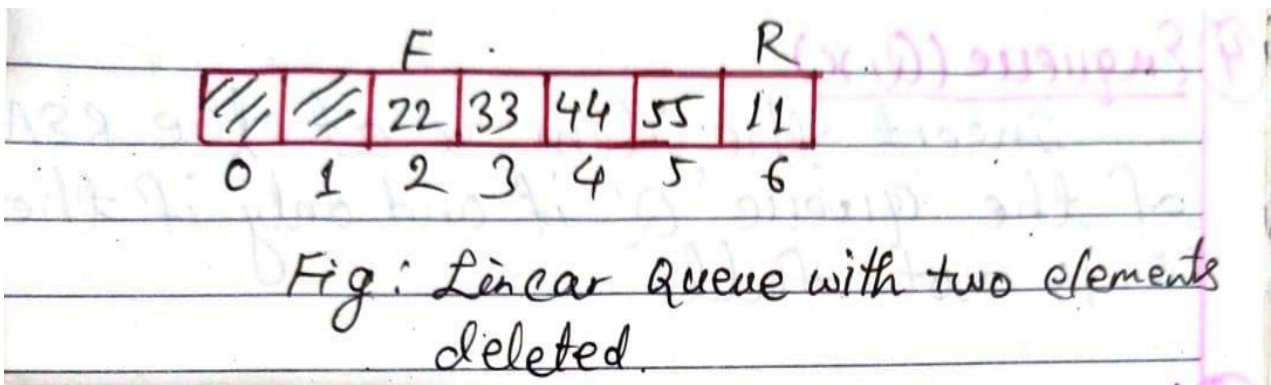 F R
22 33 44 55 11
0 1 2 3 4 5 6
Fig: Linear Queue with two elements
deleted.